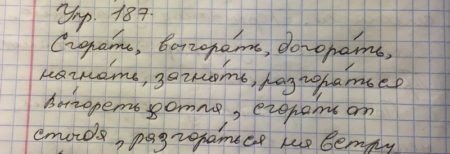 Упр. 187.
Сгора́ть, выгора́ть, догора́ть,
нагна́ть, загна́ть, разгора́ться
Вы́гореть дотла, сгора́ть от
стыда, разгора́ться на ветру